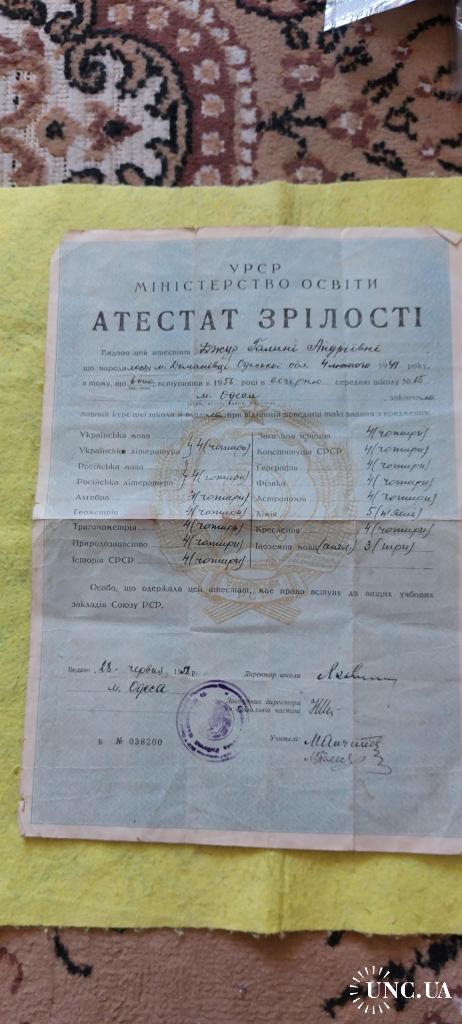 УРСР
МІНІСТЕРСТВО ОСВІТИ
АТЕСТАТ ЗРІЛОСТІ
Видано цей атестат Джур Галині Андріївні
що народилась в м. Доманівці Одеської обл. 4 лютого 1941 року,
в тому, що вона, вступивши в 1956 році в вечірню середню школу № 15
м. Одеси закінчила
повний курс цієї школи й виявила при відмінній поведінці такі знання з предметів:
Українська мова
Українська література 4 (чотири)
Російська мова
Російська література 4 (чотири)
Алгебра 4 (чотири)
Геометрія 4 (чотири)
Тригонометрія 4 (чотири)
Природознавство 4 (чотири)
Історія СРСР 4 (чотири)
Загальна історія 4 (чотири)
Конституція СРСР 4 (чотири)
Географія 4 (чотири)
Фізика 4 (чотири)
Астрономія 4 (чотири)
Хімія 5 (п'ять)
Креслення 4 (чотири)
Іноземна мова (англ) 3 (три)
Особа, що одержала цей атестат, має право вступу до вищих учбових
закладів Союзу РСР.
Видано 28 червня р.
м. Одеса
Директор школи
Заступник директора
по навчальній частині
Учителі:
Б № 038200
UNC.UA